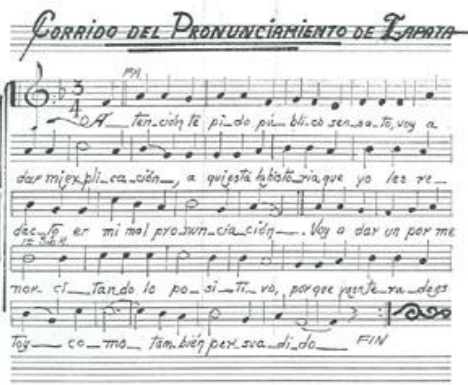 CORRIDO DEL PRONUNCIAMIENTO DE ZAPATA
3
4
A_ ten_ción te pi_do pú_ bli_co sen_sa_to, voy a
dar mi ex pli_ca_ción_, a quí está la histo_ria que yo les re_
dac_to en mi mal pro_nun_cia_ción_. Voy a dar un por me
nor ci_ tan_do lo po_si_ti_vo, por que
Toy_ co_mo_ tam_bién per_sua_di_do_ FIN